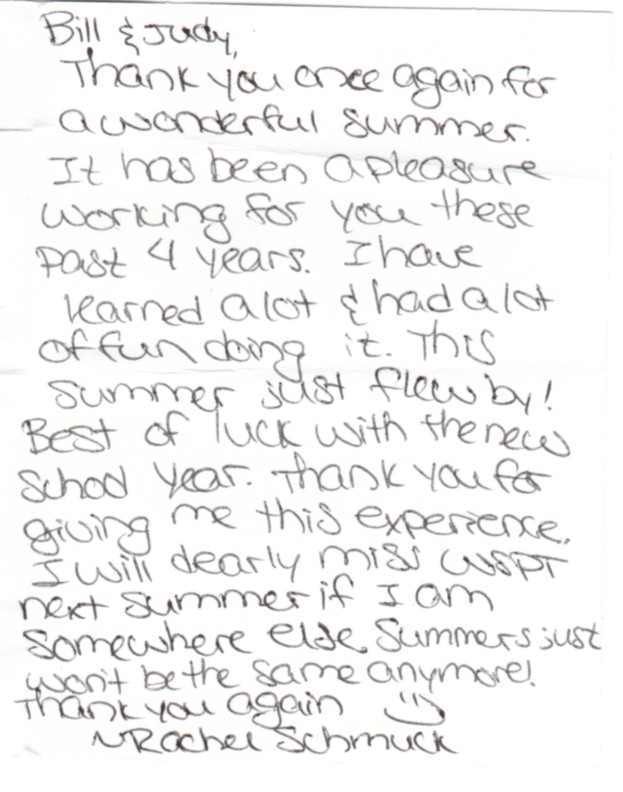 Bill & Judy,
Thank you once again for
a wonderful summer.
It has been a pleasure
working for you these
past 4 years. I have
learned a lot & had a lot
of fun doing it. This
summer just flew by!
Best of luck with the new
school year. Thank you for
giving me this experience.
I will dearly miss WSPT
next summer if I am
somewhere else. Summers just
won't be the same anymore!
Thank you again
~Rachel Schmuck